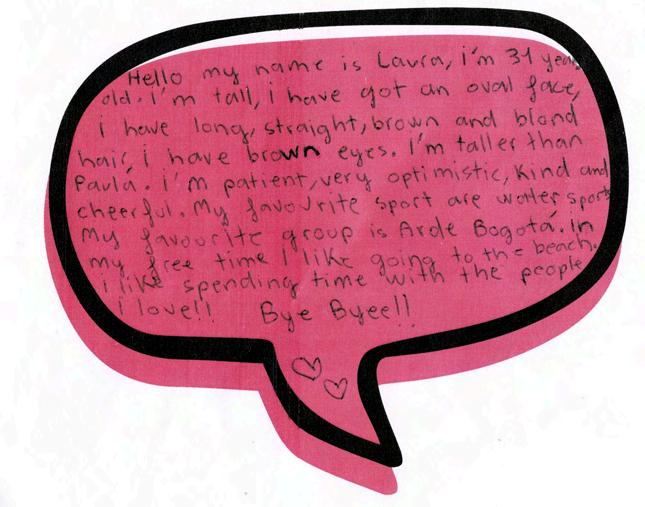 Hello my name is Laura, i'm 31 years
old. i'm tall, i have got an oval face,
i have long, straight, brown and blond
hair, i have brown eyes. I'm taller than
Paula. i'm patient, very optimistic, kind and
cheerful. My favourite sport are water sports
My favourite group is Arde Bogotá. In
my free time i like going to the beach.
i like spending time with the people
i love!! Bye Byee!!